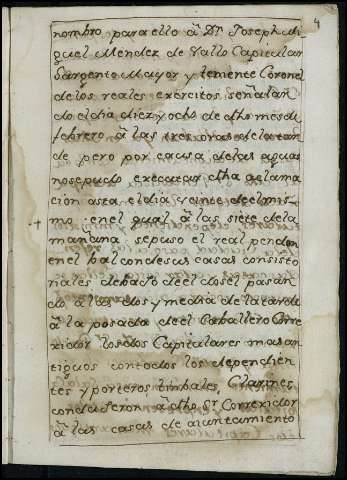 4
nombro para ello â Dn. Joseph Mi
guel Mendez de Vallo Capitular
Sargento Mayor y teniente Coronel
de los reales exércitos señalan
do el dia diez y ocho de dho mes di
febrero â las tres oras de la tar
de pero por causa de las aguas
nosepudo executar dha aclama
cion asta el dia veinte del mis
mo en el qual â las siete de la
mañana se puso el real pendon
en el balcon de sus casas consisto
riales debaxo de el dosel pasan
do â las dos y media de la tarde
â la posada de el Caballero Corre
xidor los dos Capitulares mas an
tiguos con todos los dependien
tes y porteros timbales, Clarines
conduxeron â dho Sr. Correxidor
â las casas de aiuntamiento